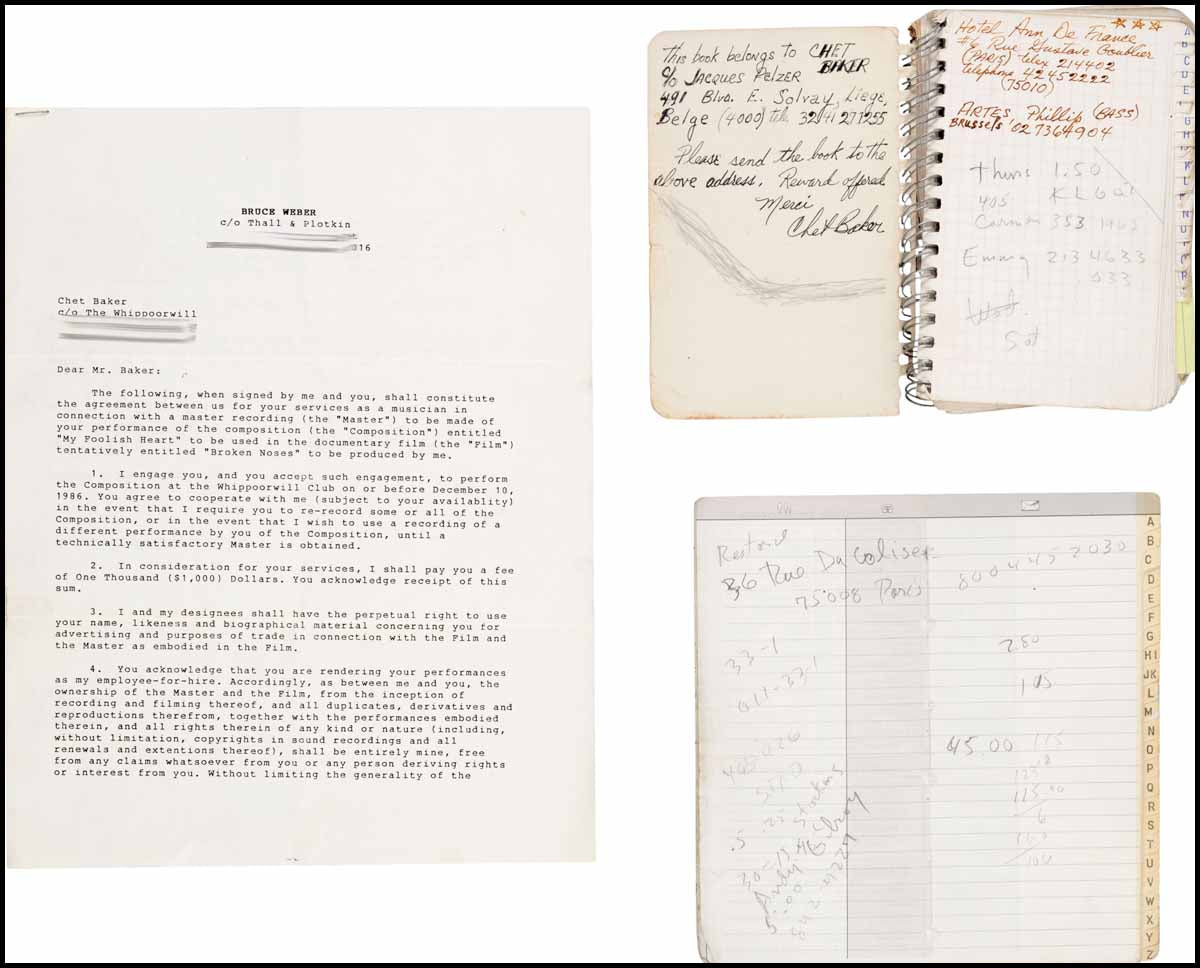 BRUCE WEBER
c/o Thall & Plotkin
16
Chet Baker
c/o The Whippoorwill
Dear Mr. Baker:
The following, when signed by me and you, shall constitute
the agreement between us for your services as a musician in
connection with a master recording (the "Master") to be made of
your performance of the composition (the "Composition") entitled
"My Foolish Heart" to be used in the documentary film (the "Film")
tentatively entitled "Broken Noses" to be produced by me.
1. I engage you, and you accept such engagement, to perform
the Composition at the Whippoorwill Club on or before December 10,
1986. You agree to cooperate with me (subject to your availablity)
in the event that I require you to re-record some or all of the
Composition, or in the event that I wish to use a recording of a
different performance by you of the Composition, until a
technically satisfactory Master is obtained.
2. In consideration for your services, I shall pay you a fee
of One Thousand ($1,000) Dollars. You acknowledge receipt of this
sum.
3. I and my designees shall have the perpetual right to use
your name, likeness and biographical material concerning you for
advertising and purposes of trade in connection with the Film and
the Master as embodied in the Film.
4. You acknowledge that you are rendering your performances
as my employee-for-hire. Accordingly, as between me and you, the
ownership of the Master and the Film, from the inception of
recording and filming thereof, and all duplicates, derivatives and
reproductions therefrom, together with the performances embodied
therein, and all rights therein of any kind or nature (including,
without limitation, copyrights in sound recordings and all
renewals and extentions thereof), shall be entirely mine, free
from any claims whatsoever from you or any person deriving rights
or interest from you. Without limiting the generality of the
This book belongs to CHET
BAKER
c/o Jacques Pelzer
491 Blvd. E. Solvay, Liege,
Belge (4000) tele 32/41 271255
Please send the book to the
above address. Reward offered
Merci
Chet Baker
Hotel Ann De France
#6 Rue Gustave Goublier
(PARIS) telex 214402
telephone 42452222
(75010)
ARTES Phillip (BASS)
Brussels 027364904
Thurs 1.50
405
353
Emmy 2134633
033
Sat
36 Rue Du Colisee
75008 Paris
8004452030
33-1
011-33-1
280
105
45.00 115
115.00
6
Andy
5:00
A
B
C
D
E
F
G
HI
JK
L
M
N
O
P
Q
R
S
T
U
V
W
X
Y
Z